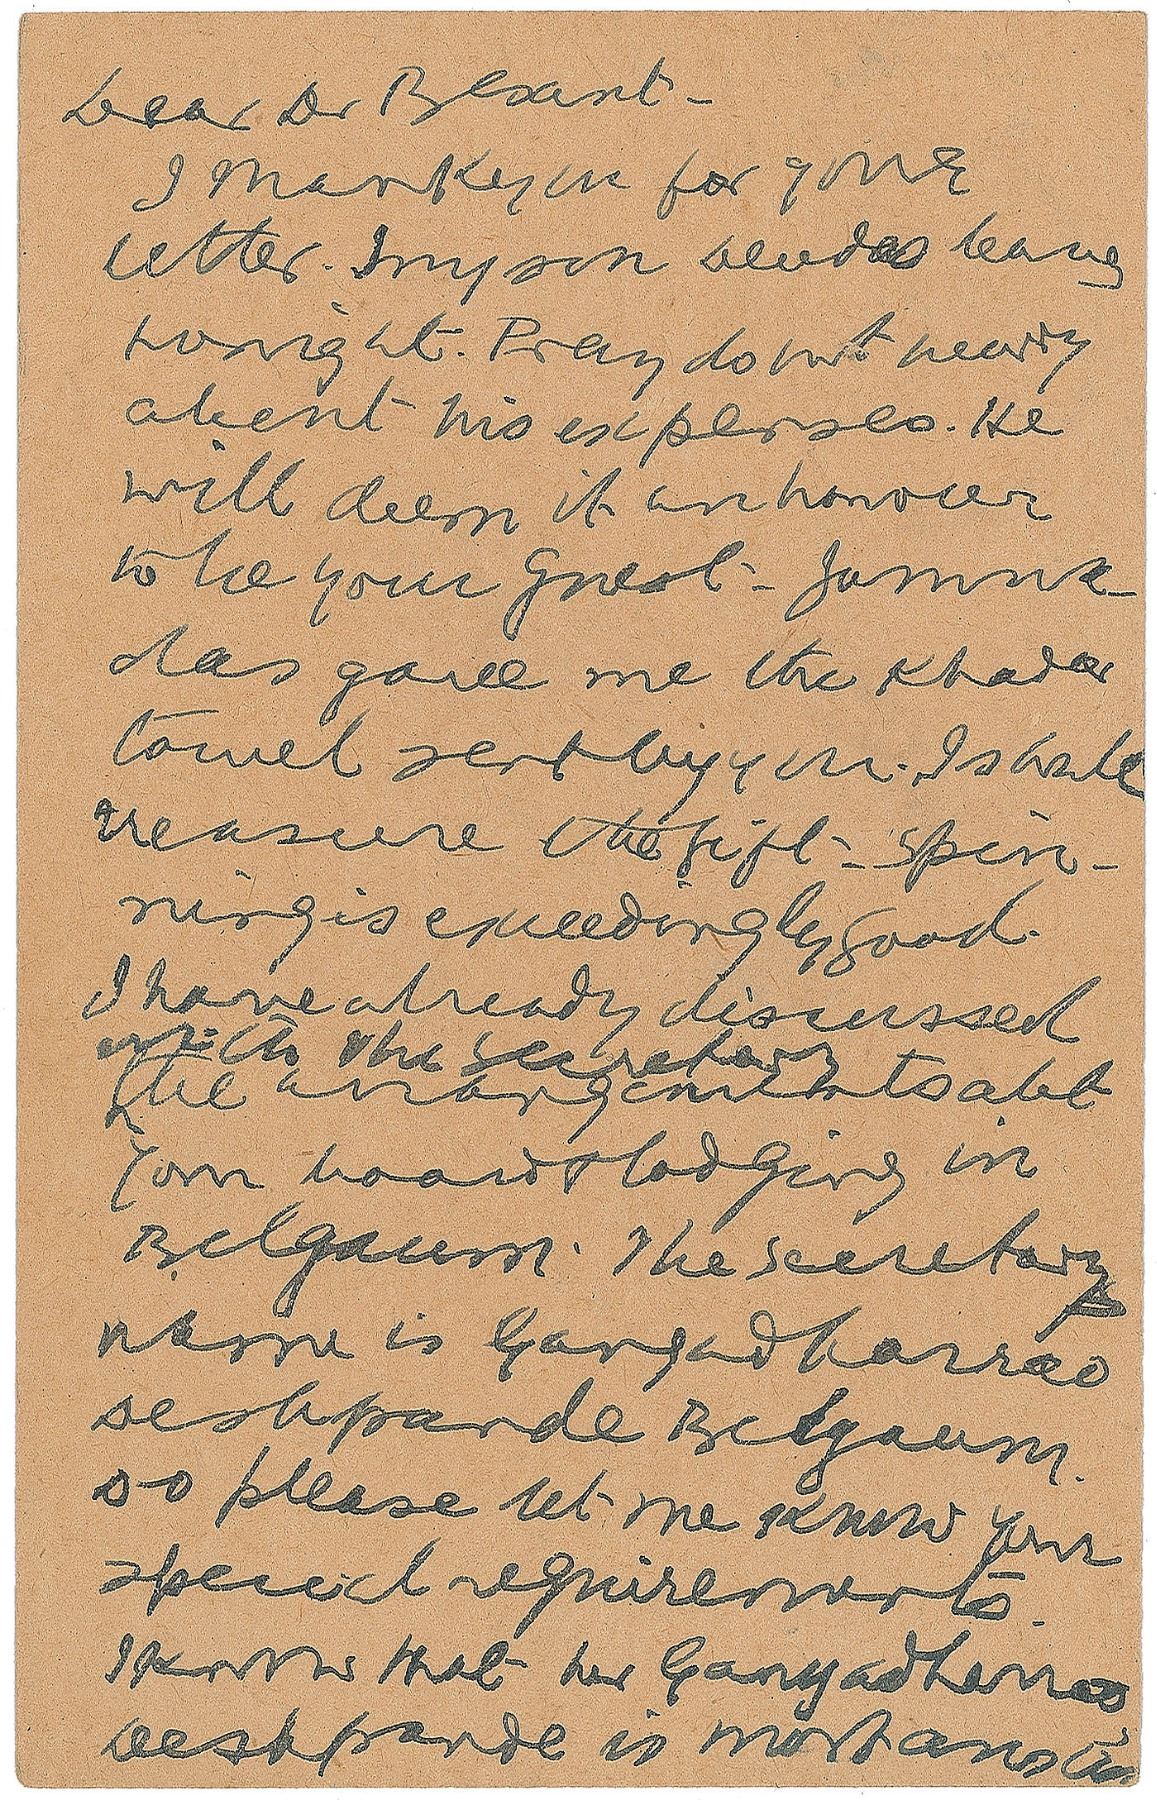 Dear Dr Besant -
I thank you for your
letter. My son Devdas leaves
tonight. Pray do not worry
about his expenses. He
will deem it an honour
to be your guest - Jamna-
das gave me the Khadar
towel sent by you. I shall
treasure the gift - Spin-
ning is exceedingly good.
I have already discussed
with the secretary
the arrangements abt
your board & lodging in
Belgaum. The Secretary
name is Gangadharrao
Deshpande Belgaum.
Do please let me know your
special requirements.
I know that Mr Gangadharrao
Deshpande is most anxious